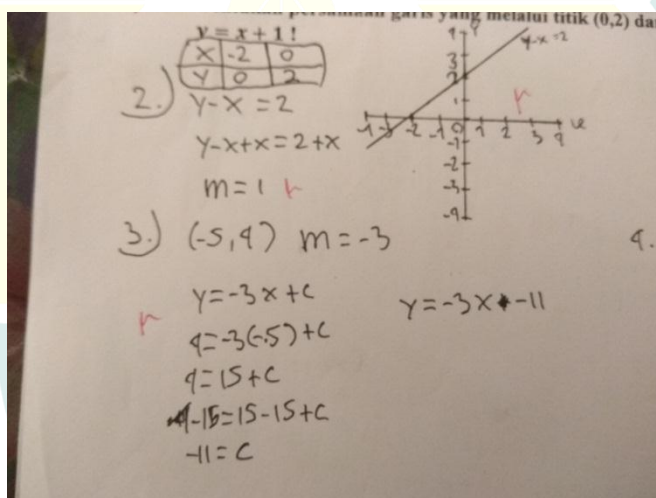 persamaan garis yang melalui titik (0,2)
y = x + 1 !
X -2 0
Y 0 2
2.) y-x = 2
y-x+x=2+x
m=1
4 Y
y-x=2
3
2
1
-4 -3 -2 -1 0 1 2 3 4
-1
-2
-3
-4
3.) (-5,4) m=-3
y=-3x+c
4=-3(-5)+c
4=15+c
4-15=15-15+c
-11=c
y=-3x-11
4.